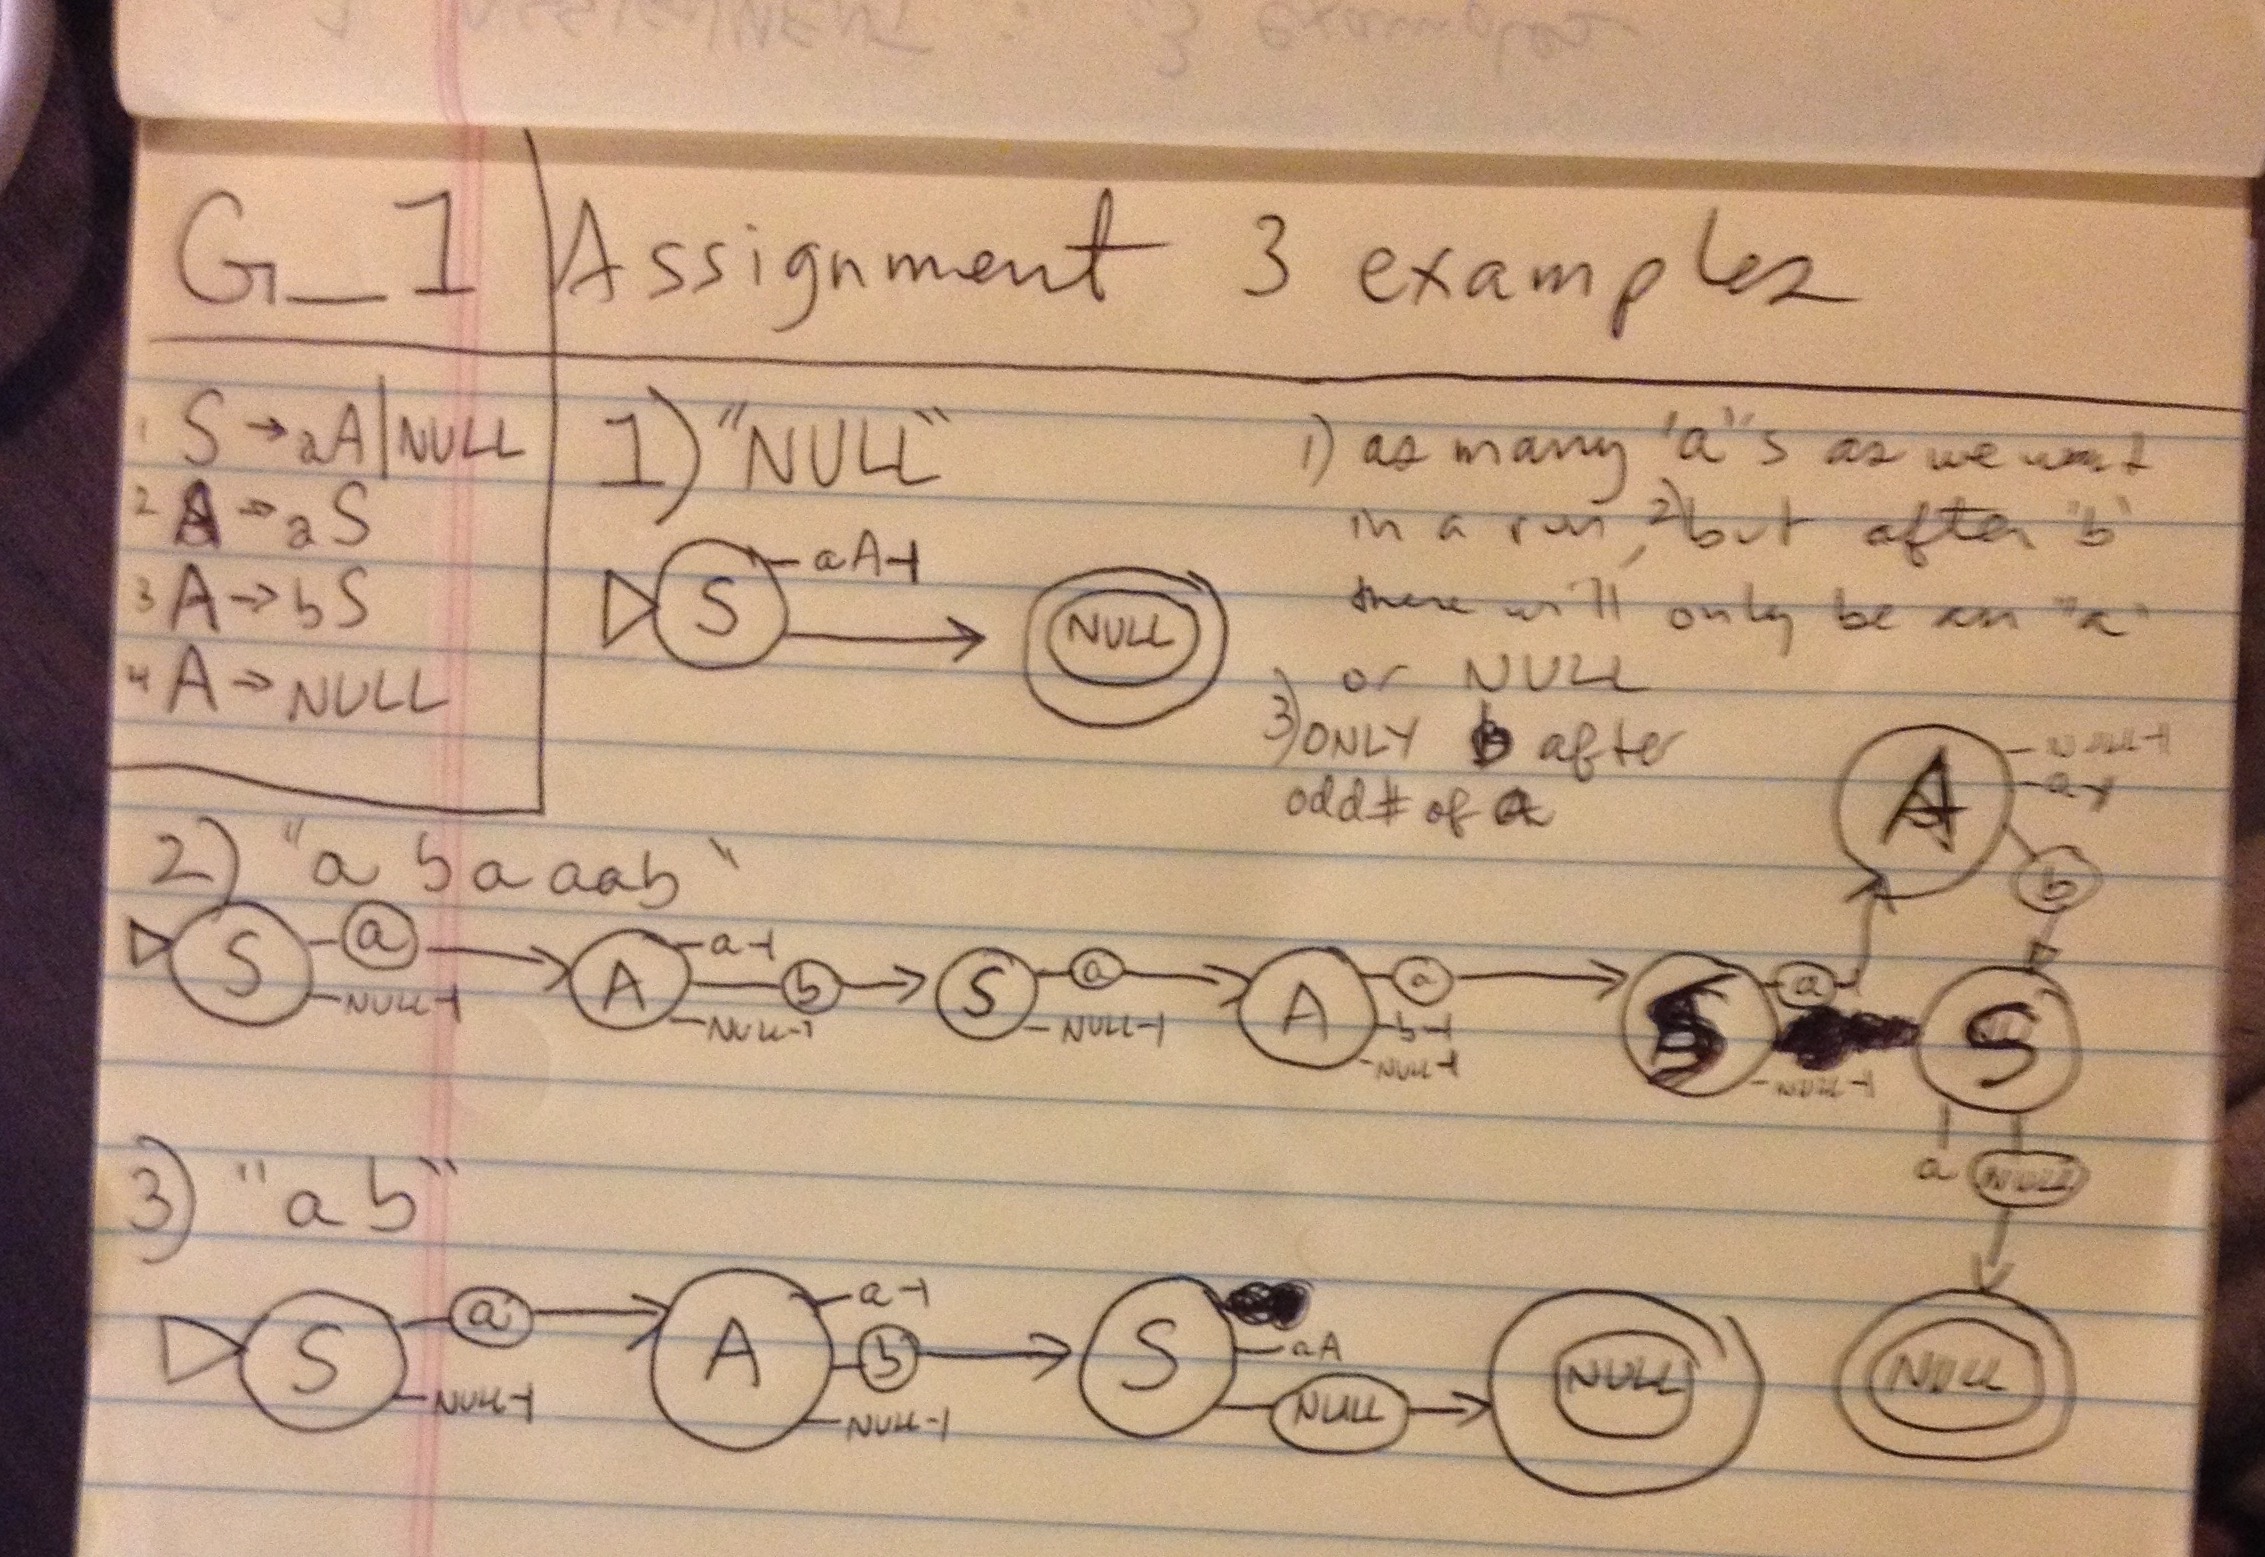 G_1
Assignment 3 examples
1 S → aA|NULL
2 A → aS
3 A → bS
4 A → NULL
1) "NULL"
S aA
NULL
1) as many 'a's as we want
in a run, 2) but after "b"
there will only be an "a"
or NULL
3) ONLY b after
odd # of a
2) "abaaab"
S a NULL
A a b NULL
S a NULL
A a b NULL
S a NULL
A NULL a b
S a NULL
NULL
3) "ab"
S a NULL
A a b NULL
S aA NULL
NULL